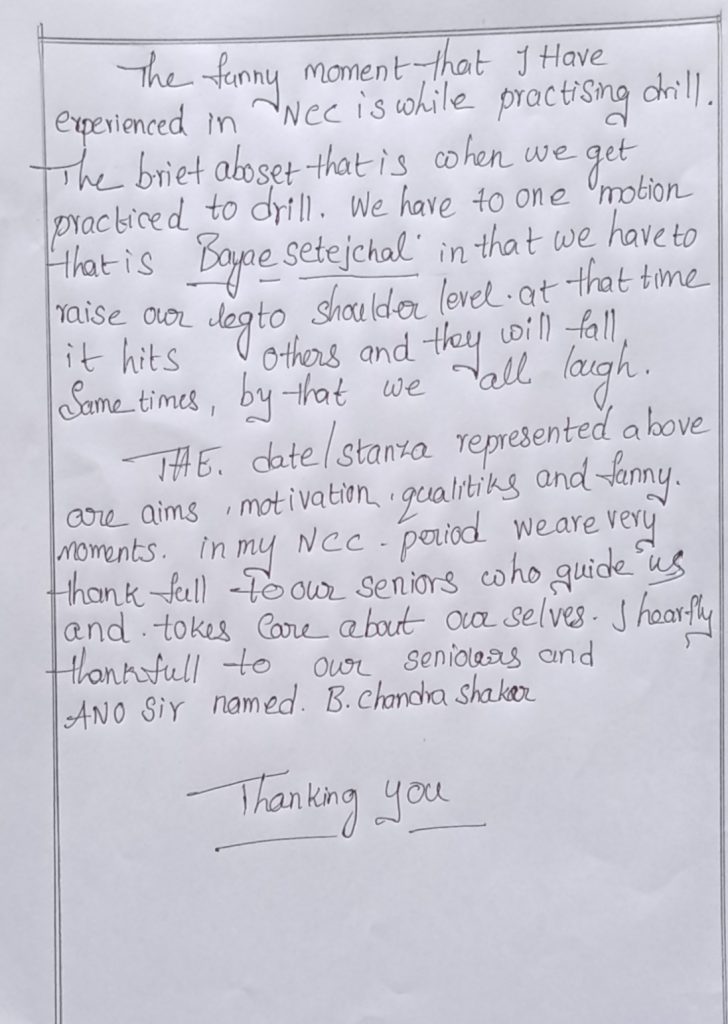 The funny moment that I Have
experienced in NCC is while practising drill.
The brief aboset that is when we get
practiced to drill. We have to one motion
that is Bayae setejchal in that we have to
raise our leg to shoulder level. at that time
it hits others and they will fall
Same times, by that we all laugh.
THE. date/stanza represented above
are aims, motivation, qualitiks and fanny.
moments. in my NCC - period we are very
thank full to our seniors who guide us
and. tokes Care about our selves. I hearfly
thankfull to our seniolers and
ANO Sir named. B. Chandra Shaker
Thanking you